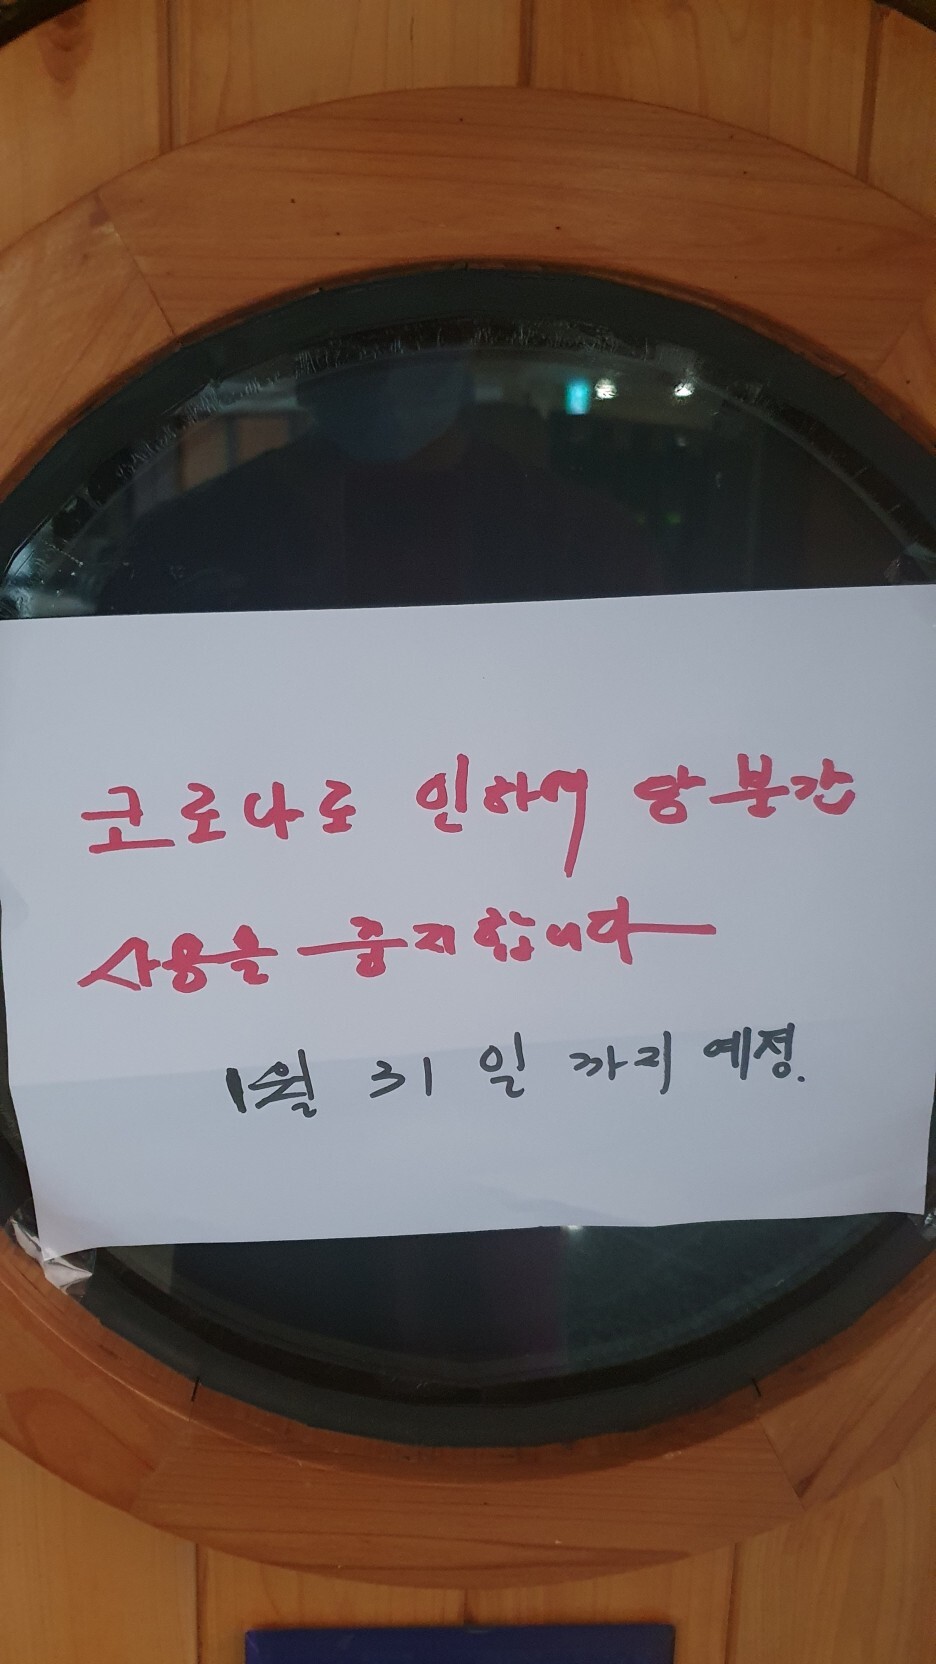 코로나로 인하여 당분간
사용을 중지합니다
1월 31일 까지 예정.